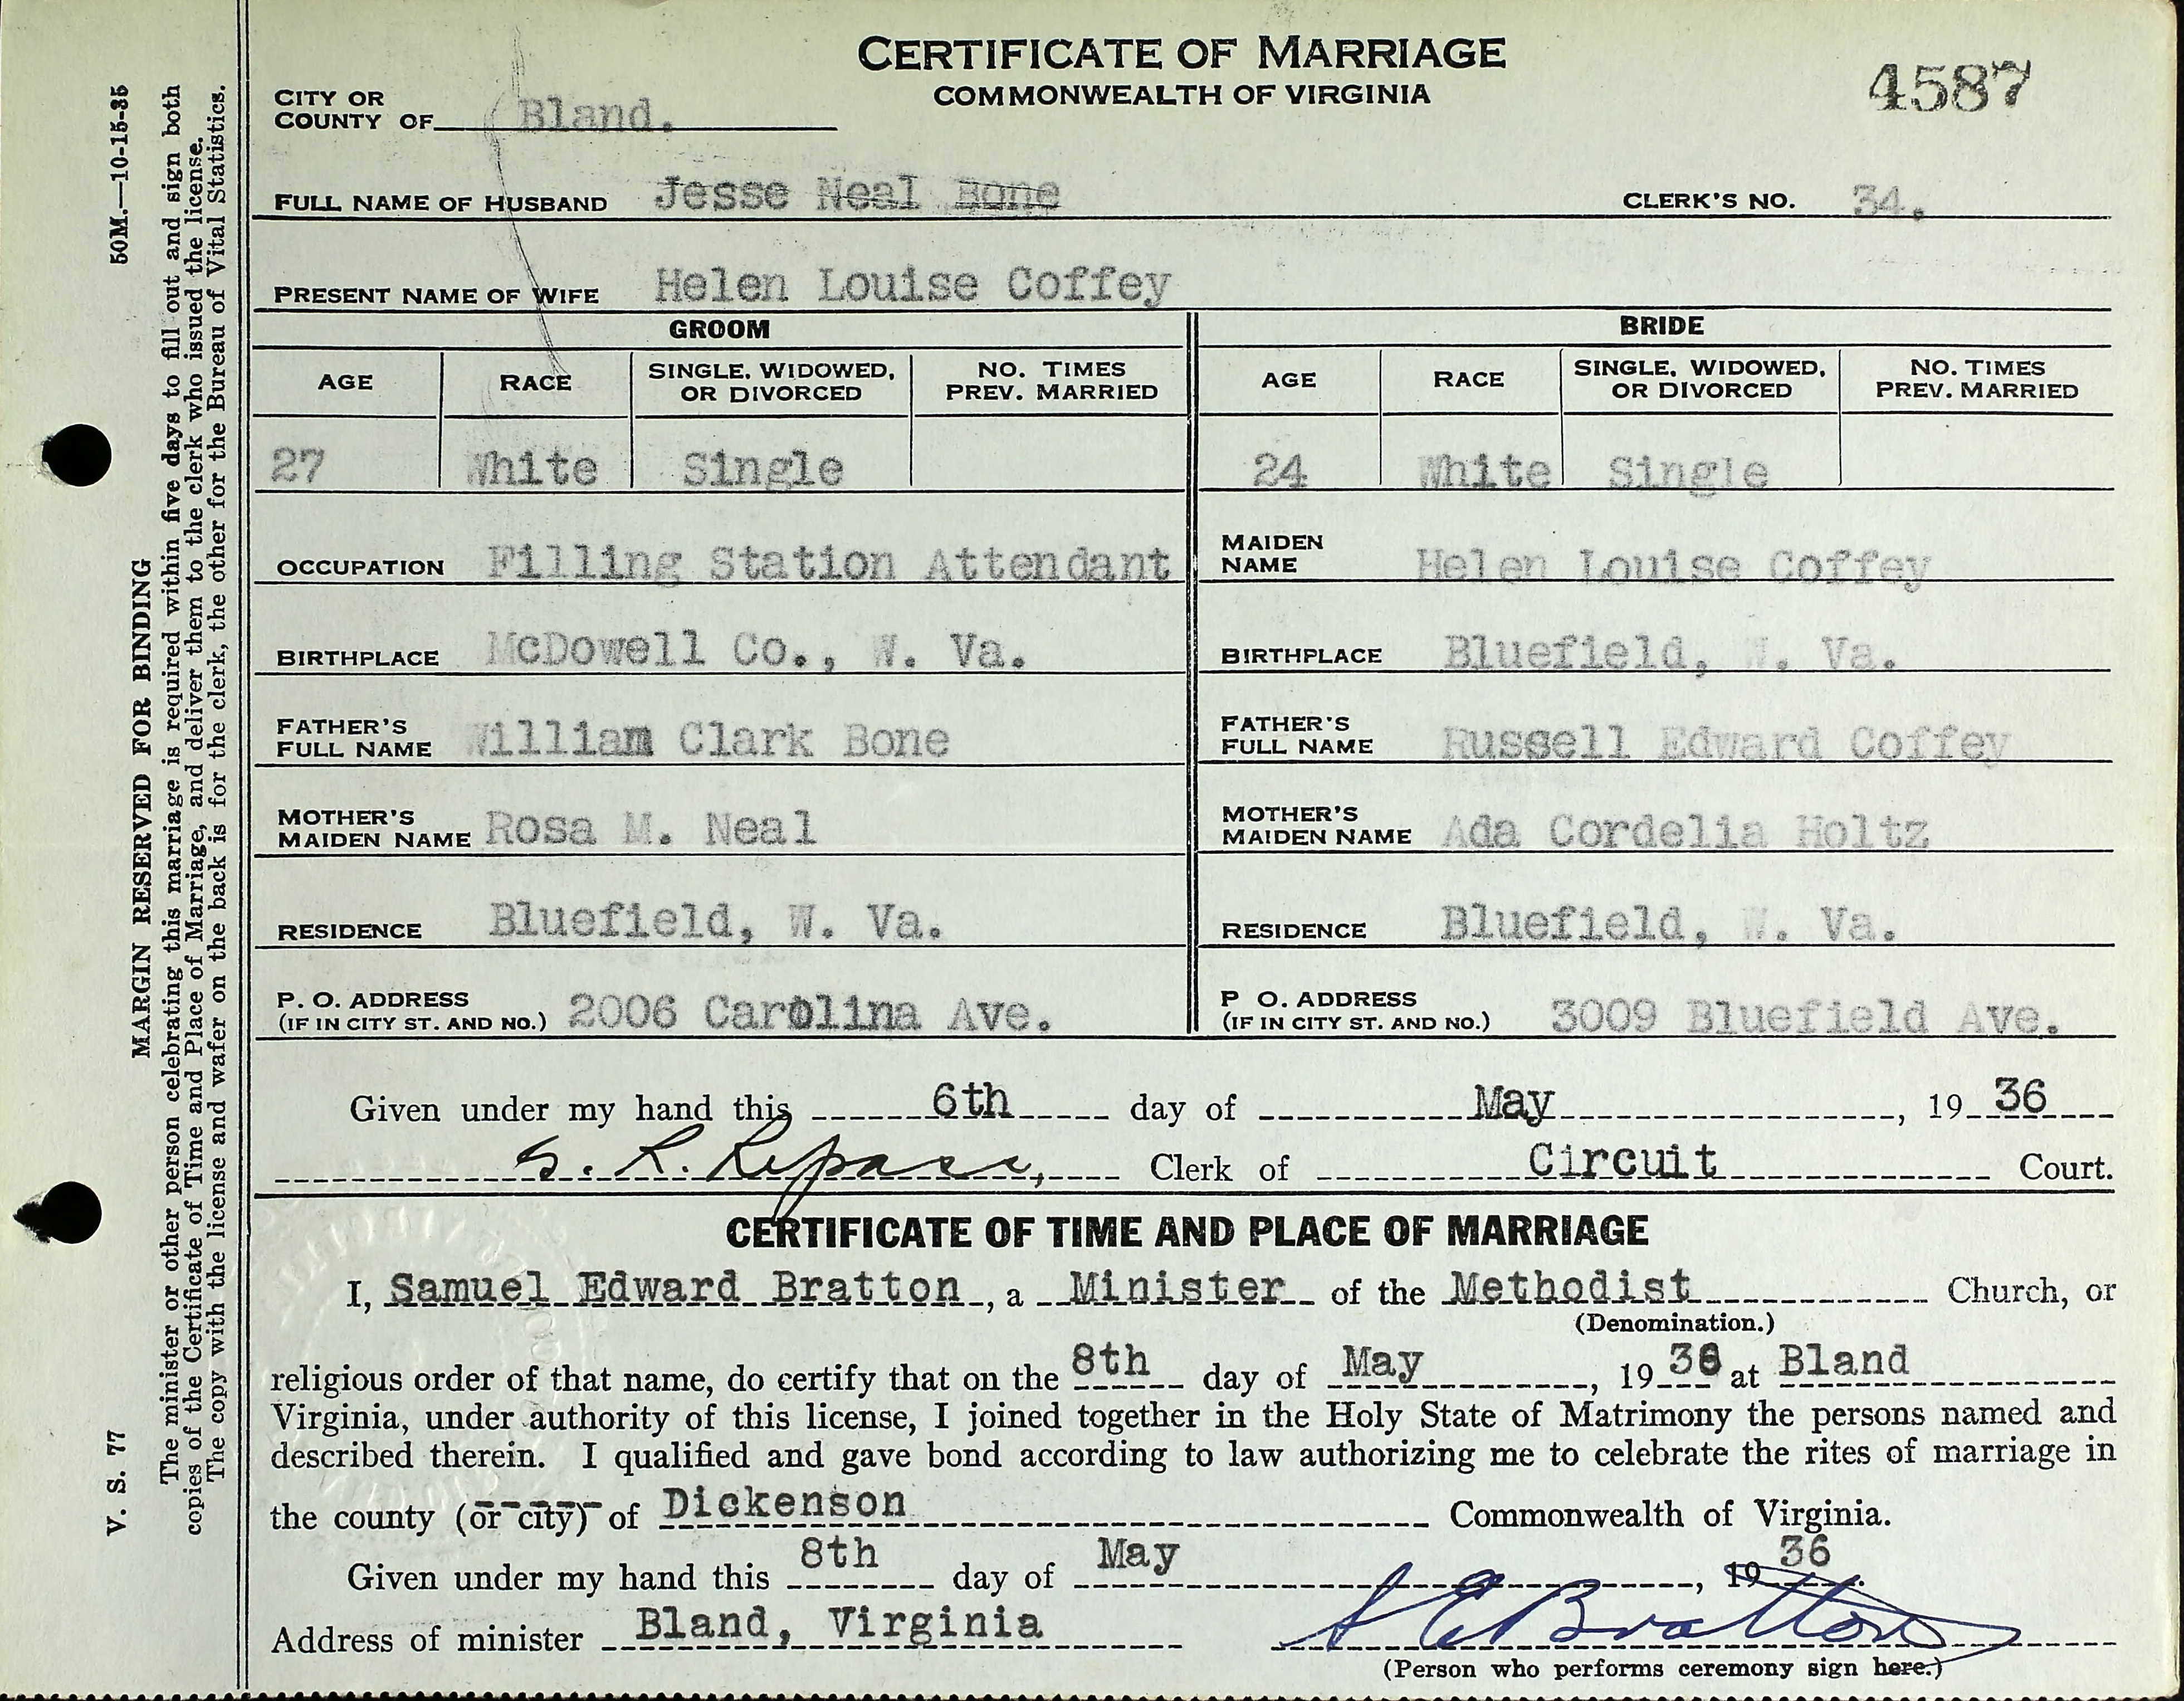 CERTIFICATE OF MARRIAGE
COMMONWEALTH OF VIRGINIA
4587
CITY OR
COUNTY OF Bland.
FULL NAME OF HUSBAND Jesse Neal Bone CLERK'S NO. 34.
PRESENT NAME OF WIFE Helen Louise Coffey
GROOM BRIDE
AGE RACE SINGLE, WIDOWED, OR DIVORCED NO. TIMES PREV. MARRIED AGE RACE SINGLE, WIDOWED, OR DIVORCED NO. TIMES PREV. MARRIED
27 White Single 24 White Single
OCCUPATION Filling Station Attendant MAIDEN NAME Helen Louise Coffey
BIRTHPLACE McDowell Co., W. Va. BIRTHPLACE Bluefield, W. Va.
FATHER'S FULL NAME William Clark Bone FATHER'S FULL NAME Russell Edward Coffey
MOTHER'S MAIDEN NAME Rosa M. Neal MOTHER'S MAIDEN NAME Ada Cordelia Holtz
RESIDENCE Bluefield, W. Va. RESIDENCE Bluefield, W. Va.
P. O. ADDRESS (IF IN CITY ST. AND NO.) 2006 Carolina Ave. P O. ADDRESS (IF IN CITY ST. AND NO.) 3009 Bluefield Ave.
Given under my hand this 6th day of May, 19 36
S. R. Repass, Clerk of Circuit Court.
CERTIFICATE OF TIME AND PLACE OF MARRIAGE
I, Samuel Edward Bratton, a Minister of the Methodist Church, or
(Denomination.)
religious order of that name, do certify that on the 8th day of May, 19 36 at Bland
Virginia, under authority of this license, I joined together in the Holy State of Matrimony the persons named and
described therein. I qualified and gave bond according to law authorizing me to celebrate the rites of marriage in
the county (or city) of Dickenson Commonwealth of Virginia.
Given under my hand this 8th day of May, 19 36.
Address of minister Bland, Virginia S E Bratton
(Person who performs ceremony sign here.)
V. S. 77 MARGIN RESERVED FOR BINDING 50M.—10-15-35
The minister or other person celebrating this marriage is required within five days to fill out and sign both
copies of the Certificate of Time and Place of Marriage, and deliver them to the clerk who issued the license.
The copy with the license and wafer on the back is for the clerk, the other for the Bureau of Vital Statistics.